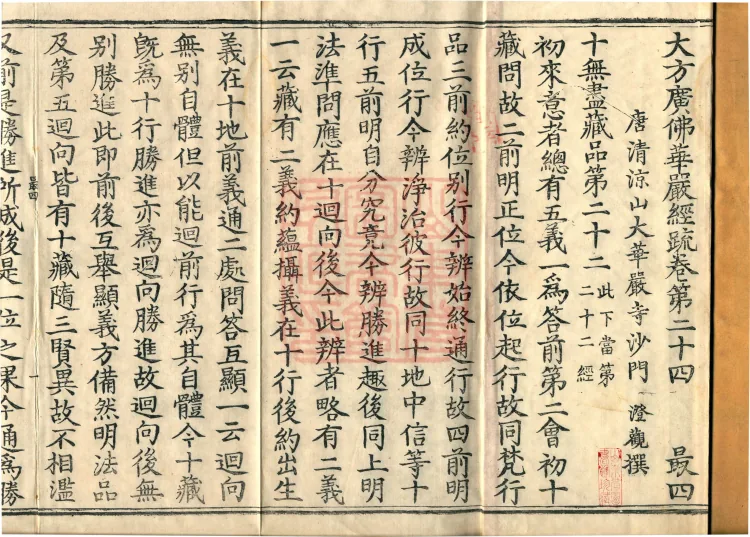 大方廣佛華嚴經䟽卷第二十四　最四
唐清涼山大華嚴寺沙門　澄觀撰
十無盡藏品第二十二此下當第二十二經
初來意者總有五義一爲答前第二會初十
藏問故二前明正位今依位起行故同梵行
品三前約位別行今辨始終通行故四前明
成位行今辨淨治彼行故同十地中信等十
行五前明自分究竟今辨勝進趣後同上明
法準問應在十迴向後今此辨者略有二義
一云藏有二義約蘊攝義在十行後約出生
義在十地前義通二處問答互顯一云迴向
無別自體但以能迴前行爲其自體今十藏
旣爲十行勝進亦爲迴向勝進故迴向後無
別勝進此即前後互舉顯義方備然明法品
及第五迴向皆有十藏隨三賢異故不相濫
又前是勝進所成後是一位之果今通爲勝
最四
一